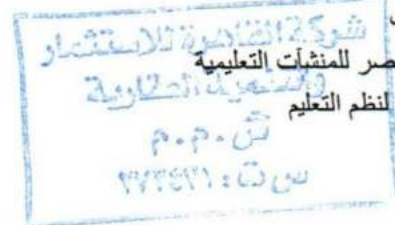 شركة القاهرة للاستثمار
صر للمنشآت التعليمية
والتنمية العقارية
لنظم التعليم
ش.م.م
س ت :